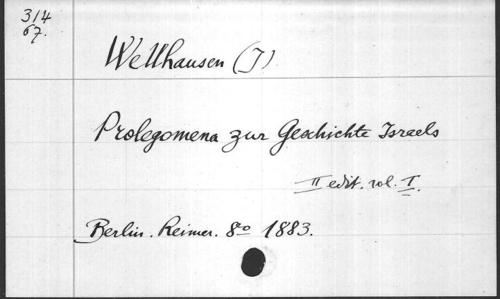 314
67.
Wellhausen (J)
Prolegomena zur Geschichte Israels
II edit. vol. I.
Berlin. Reimer. 8º 1883.